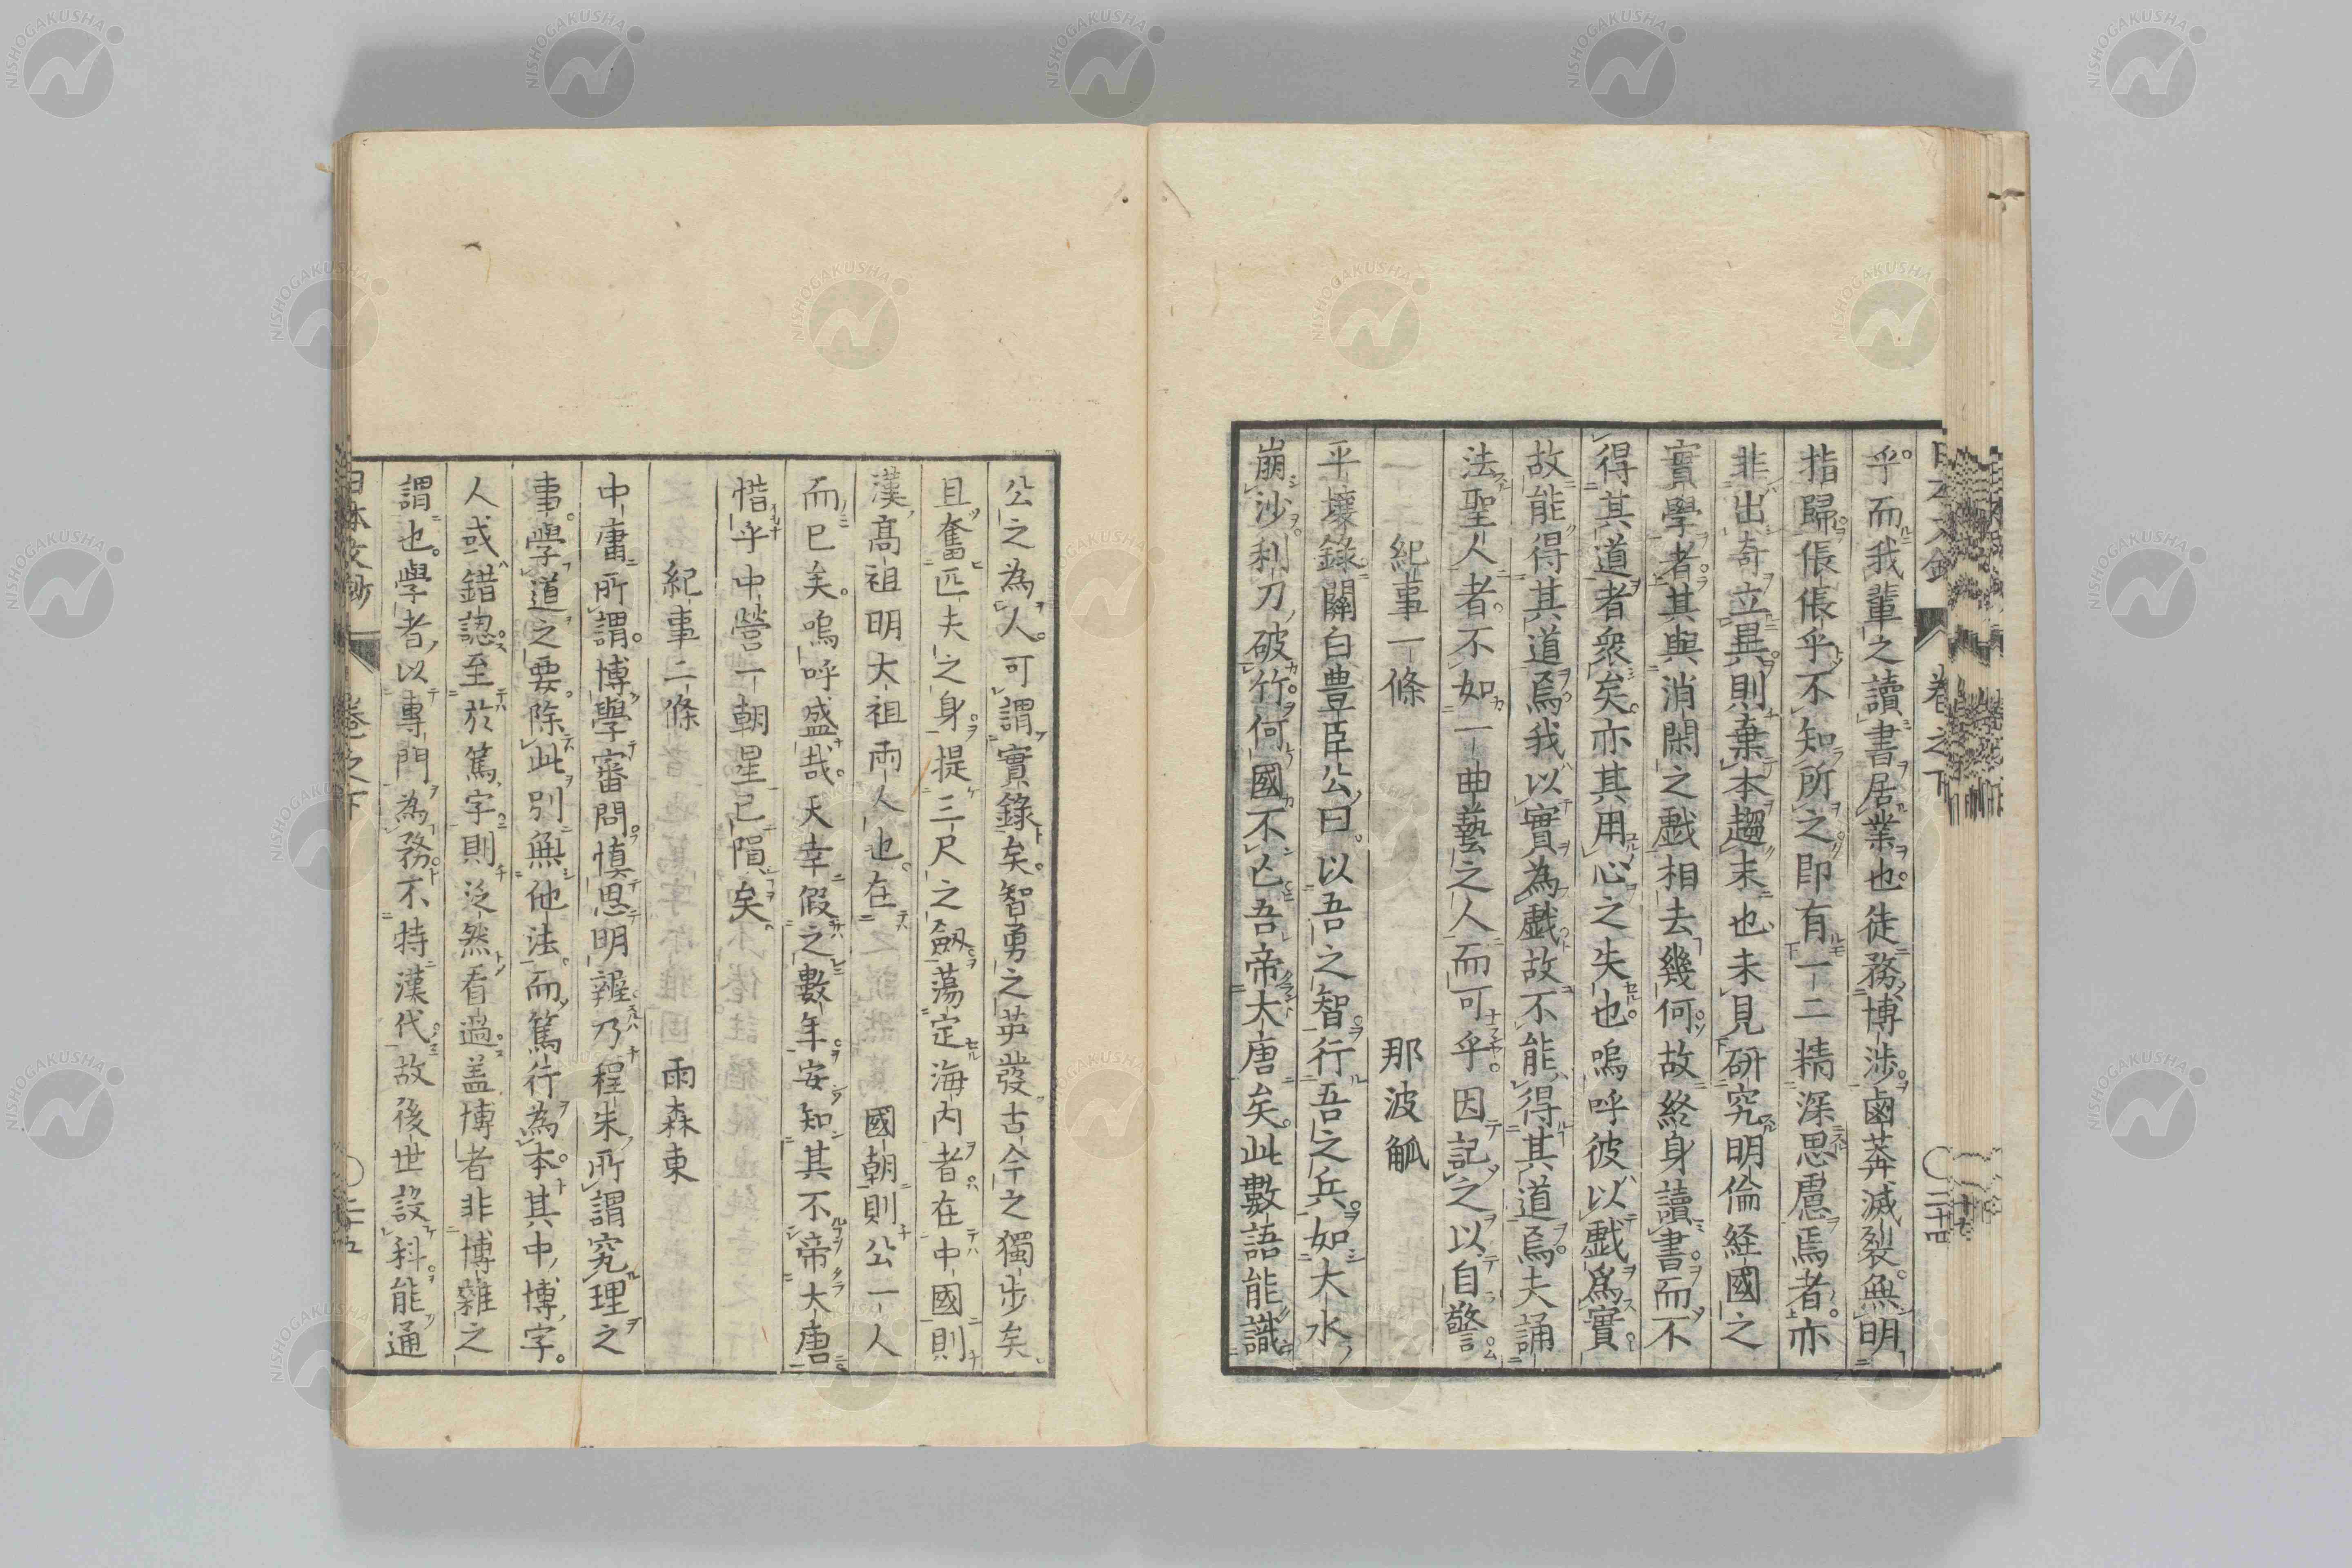 乎。而我輩之讀書居業也。徒務博渉。鹵莽滅裂。無明
指歸。倀倀乎不知所之。即有一二精深思慮焉者。亦
非出奇立異。則棄本趨末也。未見研究明倫経國之
實學者。其與消閑之戲相去幾何。故終身讀書。而不
得其道者衆矣。亦其用心之失也。嗚呼彼以戲爲實
故能得其道焉。我以實為戲。故不能得其道焉。夫誦
法聖人者。不如一曲藝之人而可乎。因記之以自警。
紀事一條 那波觚
平壤錄。關白豊臣公曰。以吾之智。行吾之兵。如大水
崩沙。利刀破竹。何國不亡。吾帝大唐矣。此數語能識
公之為人。可謂實錄矣。智勇之英發古今之獨歩矣
且奮匹夫之身。提三尺之劔。蕩定海内者。在中國則
漢高祖明大祖兩人也。在國朝則公一人
而已矣。嗚呼盛哉。天幸假之數年。安知其不帝大唐。
惜乎中營一朝星已隕矣。
紀事二條 雨森東
中庸所謂。博學審問。慎思明辨。乃程朱所謂究理之
事。學道之要。除此別無他法。而篤行為本。其中博字。
人或錯認。至於篤字則泛然看過。盖博者非博雜之
謂也。學者以專門為務。不特漢代。故後世設科。能通
日本文鈔 卷之下 二十四
日本文鈔 卷之下 二十五
NISHOGAKUSHA